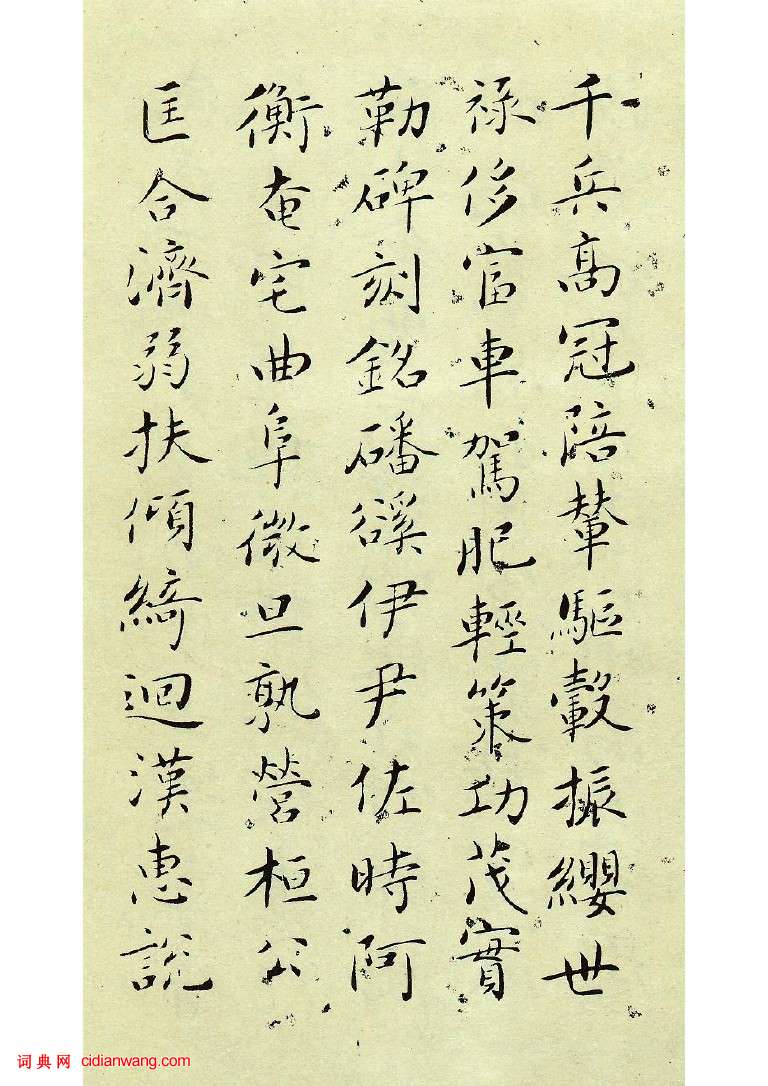 千兵高冠陪輦驅轂振纓世
祿侈富車駕肥輕策功茂實
勒碑刻銘磻磎伊尹佐時阿
衡奄宅曲阜微旦孰營桓公
匡合濟弱扶傾綺迴漢惠說
词典网 cidianwang.com